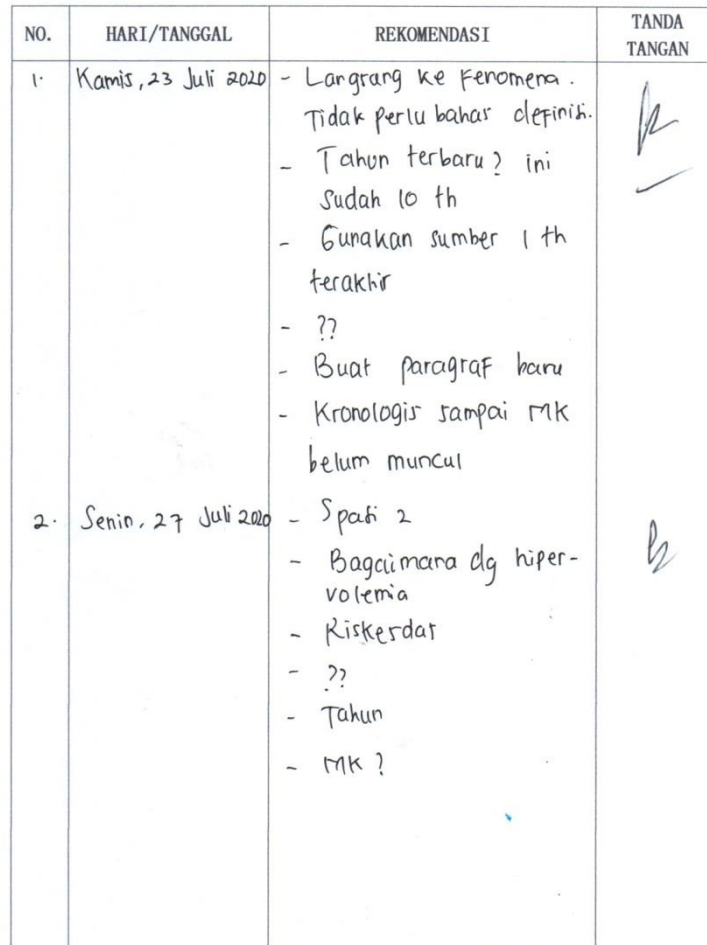 NO. HARI/TANGGAL REKOMENDASI TANDA TANGAN
1. Kamis, 23 Juli 2020 - Langsung ke Fenomena.
Tidak perlu bahas definisi.
- Tahun terbaru? ini
sudah 10 th
- Gunakan sumber 1 th
terakhir
- ??
- Buat paragraf baru
- Kronologis sampai MK
belum muncul
2. Senin, 27 Juli 2020 - Spasi 2
- Bagaimana dg hiper-
volemia
- Riskesdas
- ??
- Tahun
- MK ?